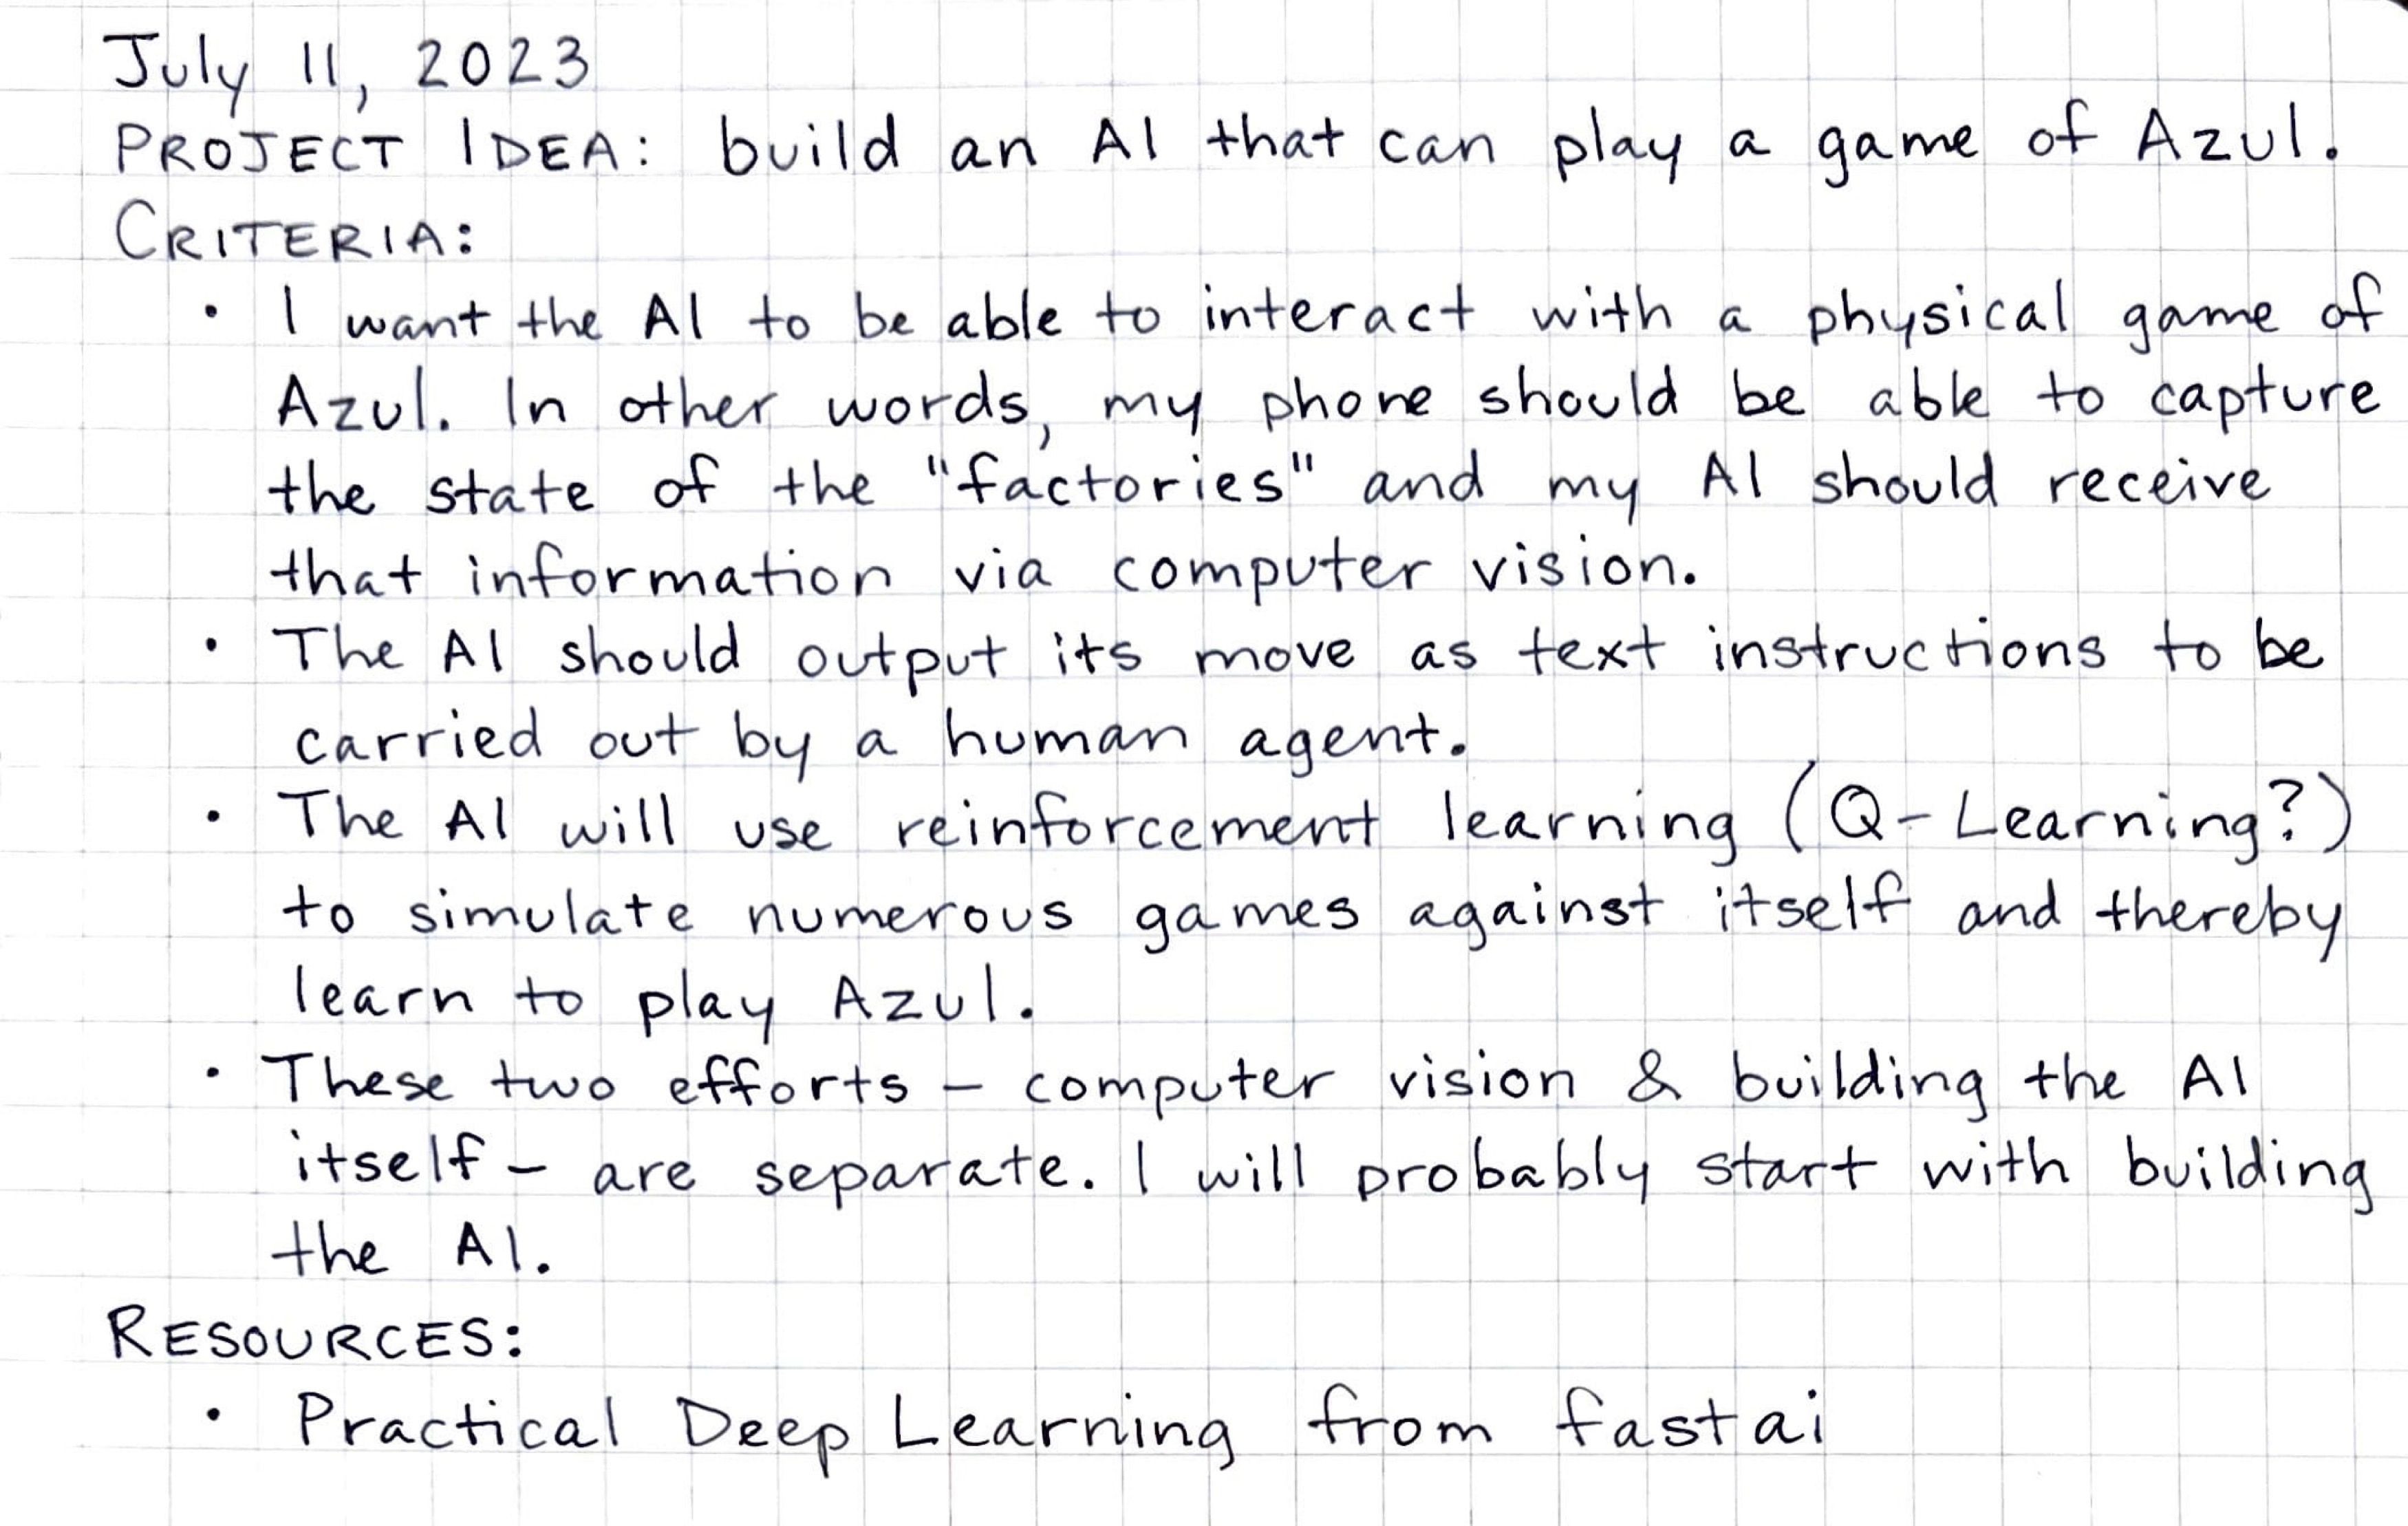 July 11, 2023
PROJECT IDEA: build an AI that can play a game of Azul.
CRITERIA:
• I want the AI to be able to interact with a physical game of
Azul. In other words, my phone should be able to capture
the state of the "factories" and my AI should receive
that information via computer vision.
• The AI should output its move as text instructions to be
carried out by a human agent.
• The AI will use reinforcement learning (Q-Learning?)
to simulate numerous games against itself and thereby
learn to play Azul.
• These two efforts - computer vision & building the AI
itself - are separate. I will probably start with building
the AI.
RESOURCES:
• Practical Deep Learning from fastai